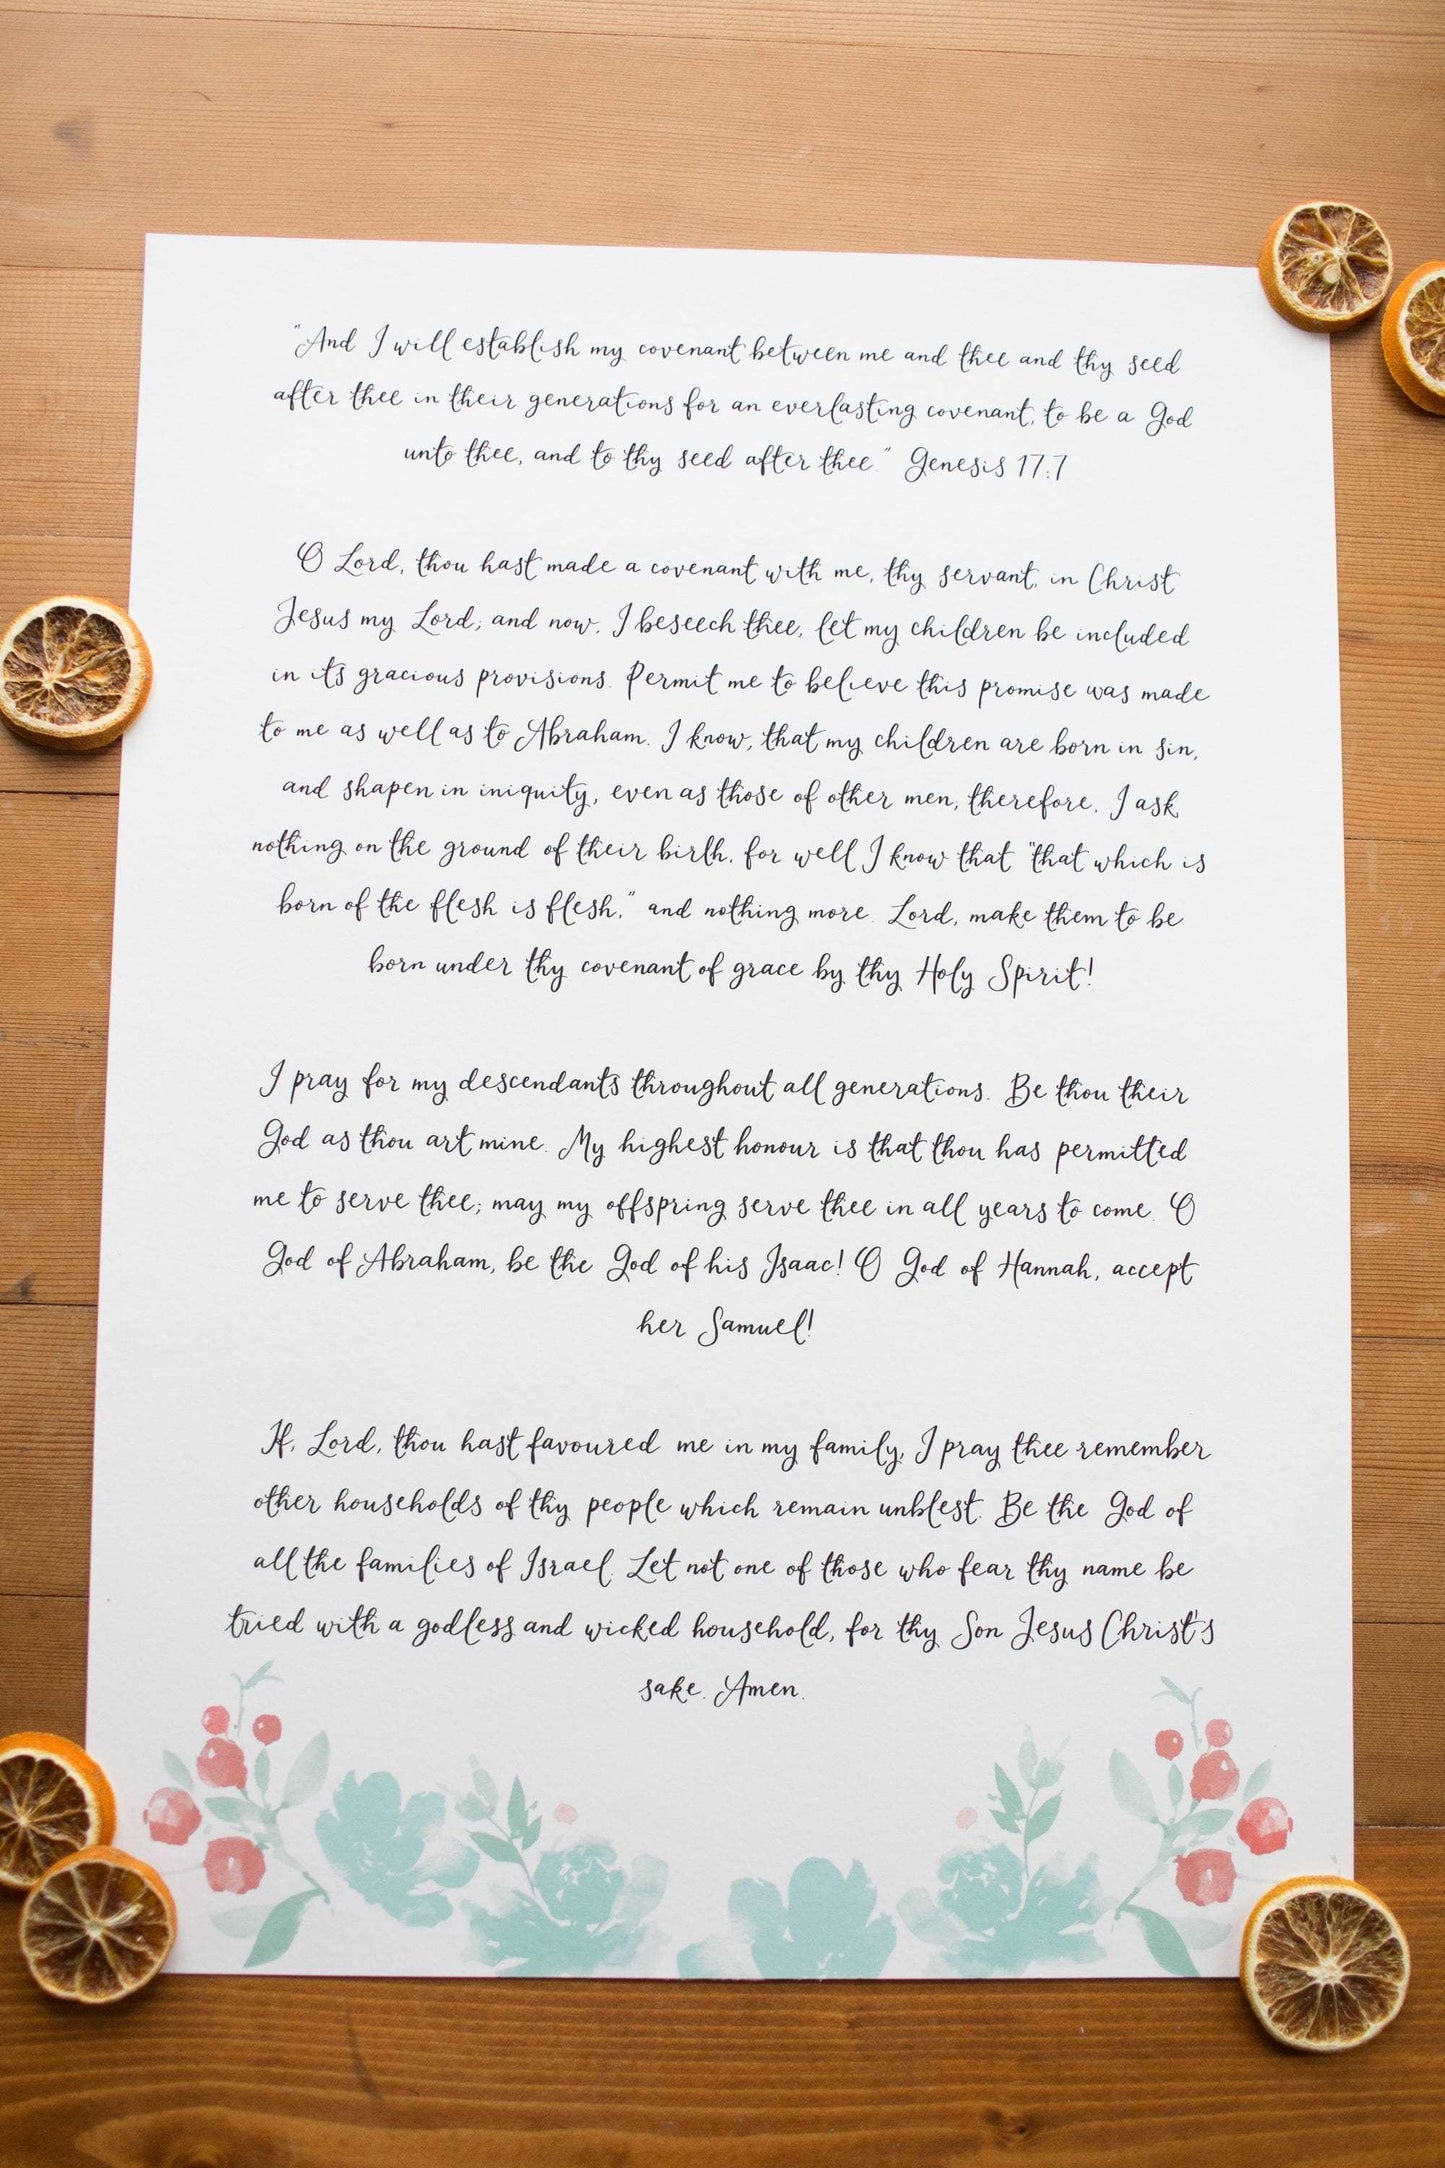 "And I will establish my covenant between me and thee and thy seed
after thee in their generations for an everlasting covenant, to be a God
unto thee, and to thy seed after thee." Genesis 17:7
O Lord, thou hast made a covenant with me, thy servant, in Christ
Jesus my Lord; and now, I beseech thee, let my children be included
in its gracious provisions. Permit me to believe this promise was made
to me as well as to Abraham. I know, that my children are born in sin,
and shapen in iniquity, even as those of other men; therefore, I ask
nothing on the ground of their birth, for well I know that "that which is
born of the flesh is flesh," and nothing more. Lord, make them to be
born under thy covenant of grace by thy Holy Spirit!
I pray for my descendants throughout all generations. Be thou their
God as thou art mine. My highest honour is that thou has permitted
me to serve thee; may my offspring serve thee in all years to come. O
God of Abraham, be the God of his Isaac! O God of Hannah, accept
her Samuel!
If, Lord, thou hast favoured me in my family, I pray thee remember
other households of thy people which remain unblest. Be the God of
all the families of Israel. Let not one of those who fear thy name be
tried with a godless and wicked household, for thy Son Jesus Christ's
sake. Amen.